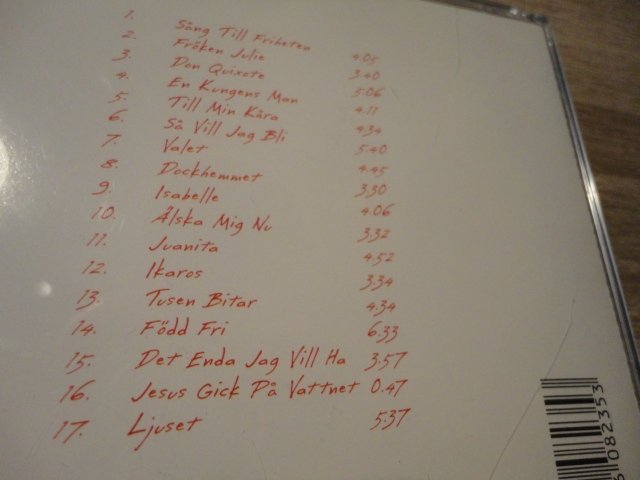 1. Sång Till Friheten 4:05
2. Fröken Julie 3:40
3. Don Quixote 5:06
4. En Kungens Man 4:11
5. Till Min Kära 4:34
6. Så Vill Jag Bli 5:40
7. Valet 4:45
8. Dockhemmet 3:30
9. Isabelle 4:06
10. Älska Mig Nu 3:32
11. Juanita 4:52
12. Ikaros 3:34
13. Tusen Bitar 4:34
14. Född Fri 6:33
15. Det Enda Jag Vill Ha 3:57
16. Jesus Gick På Vattnet 0:47
17. Ljuset 5:37
6082353